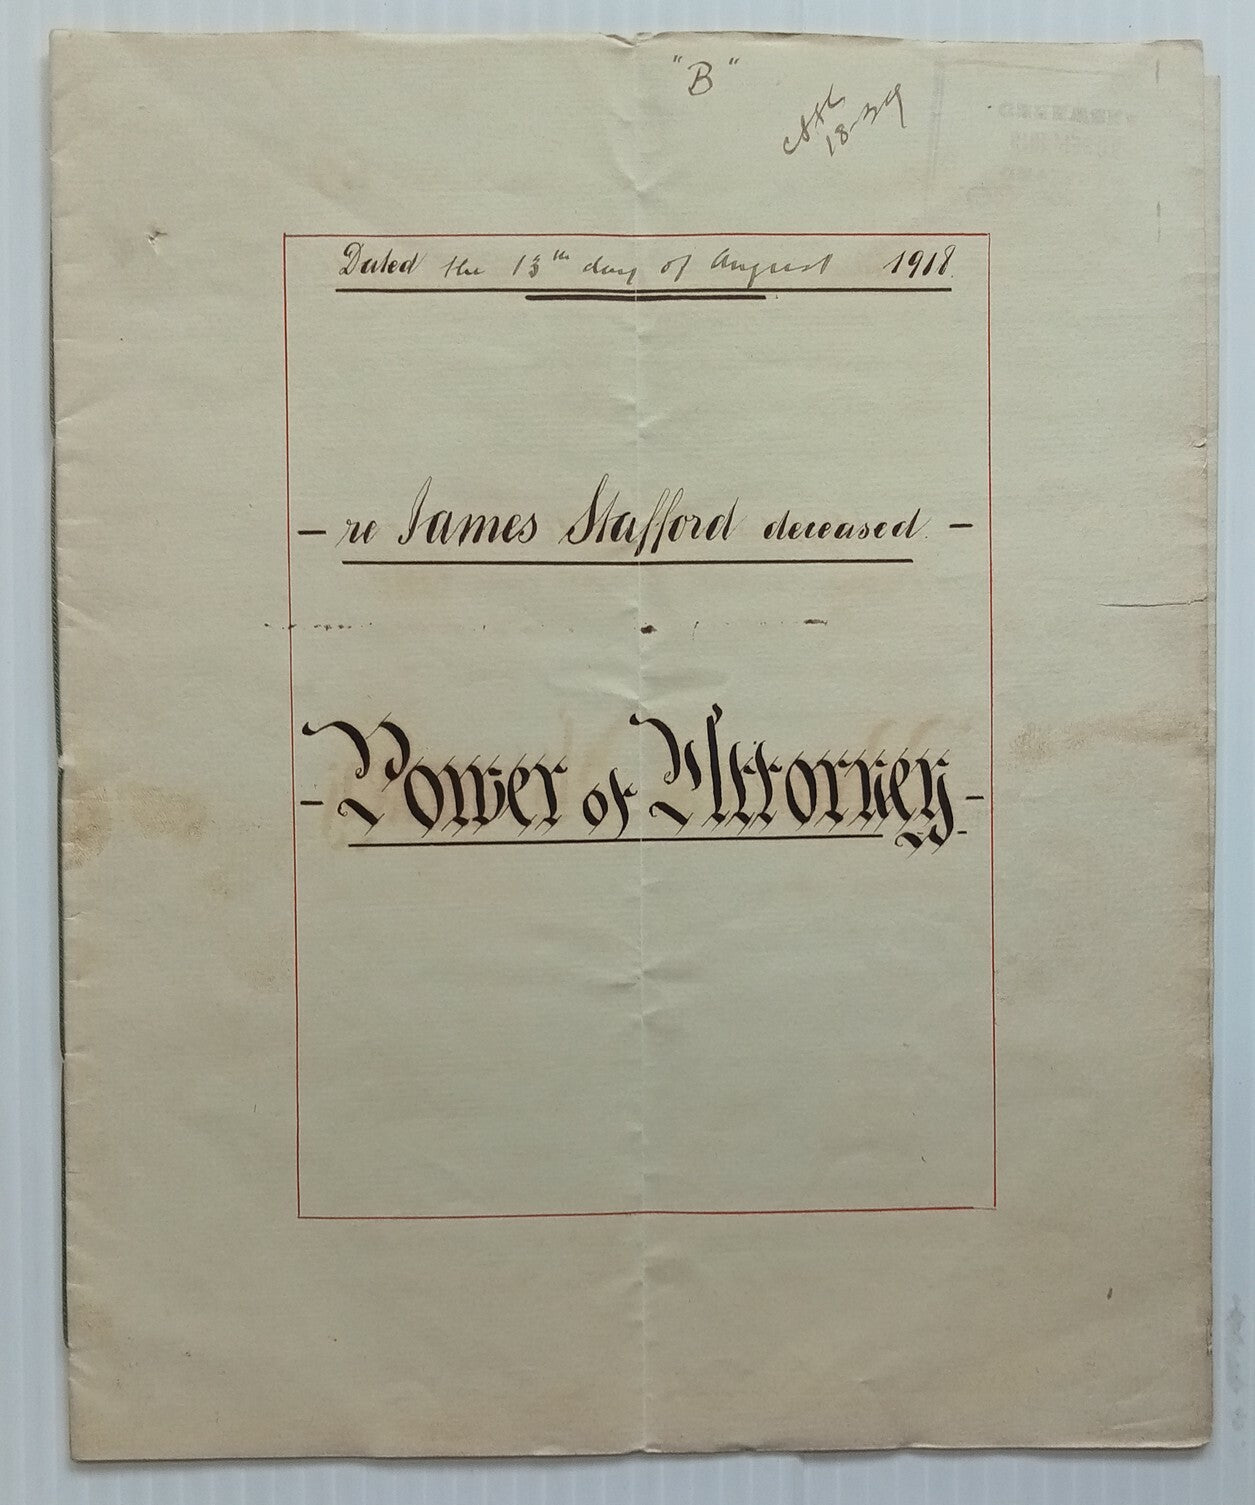 "B"
18-39
Dated the 13th day of August 1918.
- re James Stafford deceased. -
- Power of Attorney -